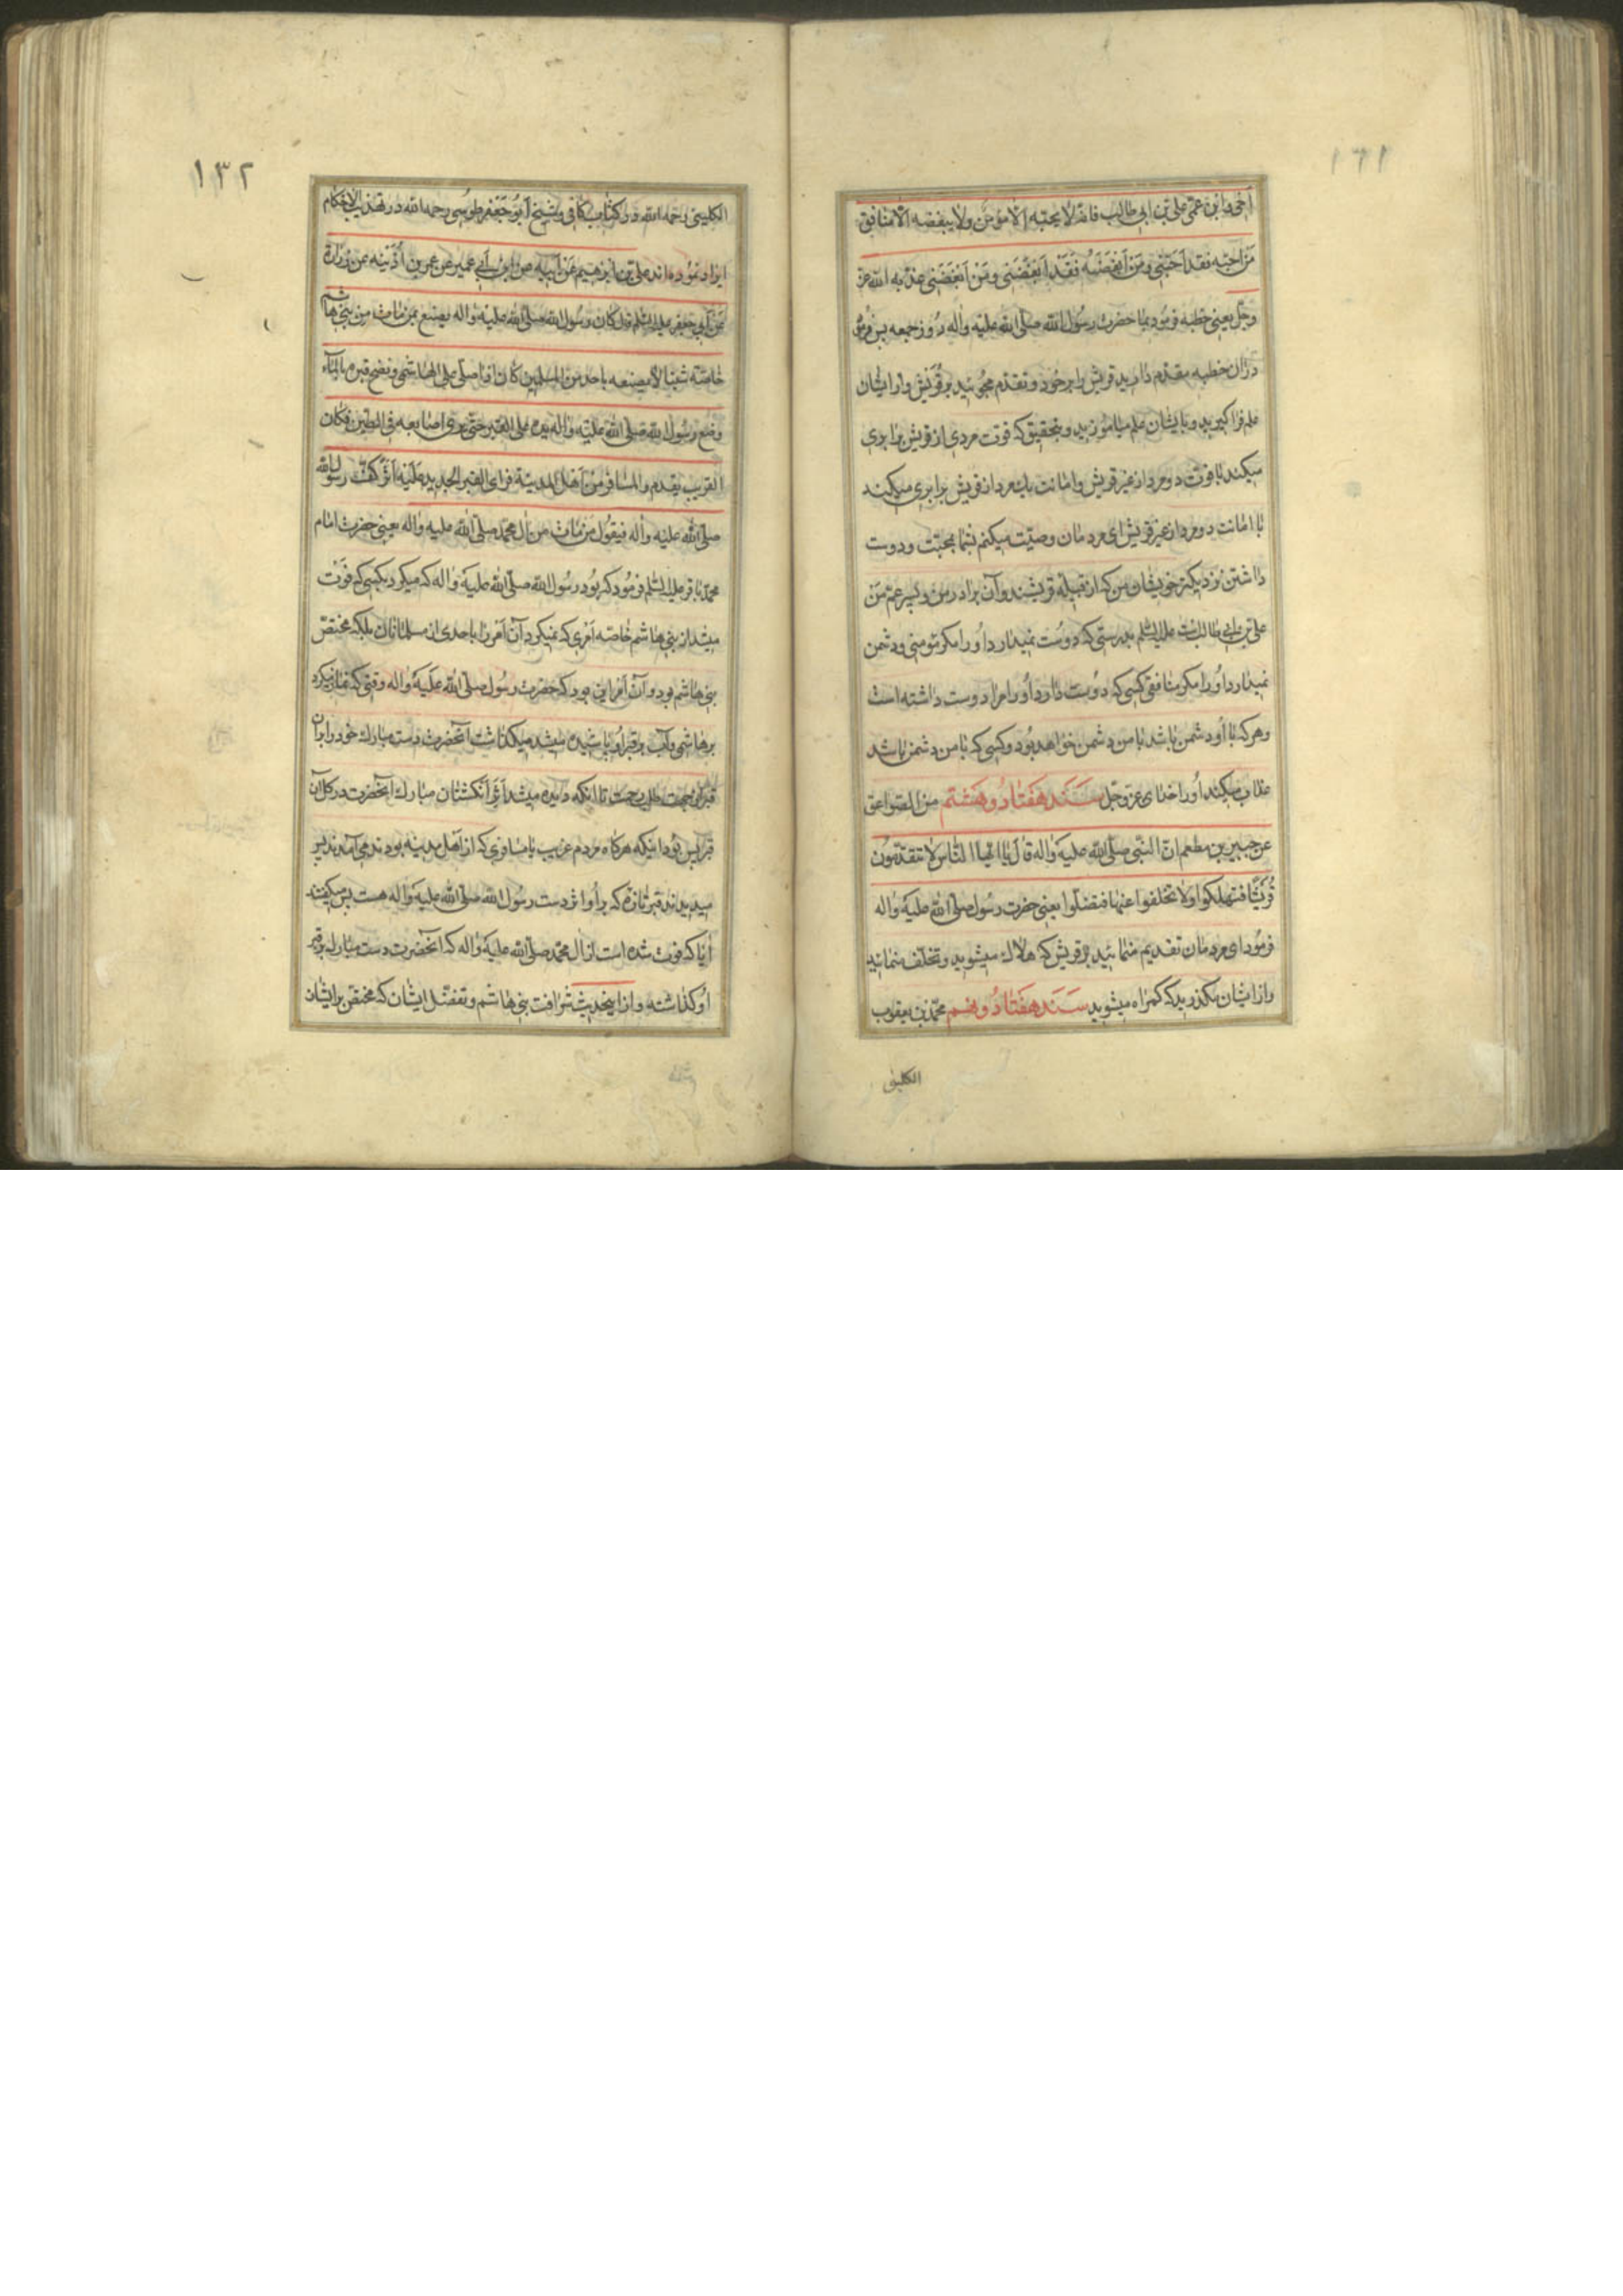 ١٣١
أخي وابن عمّي علي بن ابي طالب فانه لا يحبّه الا مؤمن ولا يبغضه الا منافق
من احبّه فقد احبّني ومن ابغضه فقد ابغضني ومن ابغضني عذّبه الله عز
وجل يعني خطبه فرمود بما حضرت رسول الله صلى الله عليه وآله روز جمعه پس فرمود
در آن خطبه مقدم دارید قریش را بر خود و تقدم مجوئید بر قریش و از ایشان
علم فرا کیرید و بایشان علم میاموزید و بتحقیق که قوت مردی از قریش برابری
میکند با قوت دو مرد از غیر قریش و امانت یك مرد از قریش برابری میکند
با امانت دو مرد از غیر قریش ای مردمان وصیّت میکنم شما بمحبّت و دوست
داشتن نزدیکتر خویشان من که از قبیله قریشند و آن برادر من و پسر عمّ من
علی بن ابی طالب است علیه السّلم بدرستی که دوست نمیدارد او را مکر مؤمنی و دشمن
نمیدارد او را مکر منافقی کسی که دوست دارد او را مرا دوست داشته است
و هر که با او دشمن باشد با من دشمن خواهد بود و کسی که با من دشمن باشد
عذاب میکند او را خدای عز وجل سند هفتاد و هشتم من الصواعق
عن جبیر بن مطعم ان النبی صلى الله علیه وآله قال یا ایها الناس لا تتقدمون
قریشا فتهلکوا ولا تخلفوا عنها فتضلوا یعنی حضرت رسول صلى الله علیه وآله
فرمود ای مردمان تقدیم منمائید بر قریش که هلاك میشوید و تخلف منمائید
و از ایشان مکذرید که کمراه میشوید سند هفتاد و نهم محمد بن یعقوب
الکلینی
١٣٢
الکلینی رحمه الله در کتاب کافی و شیخ ابو جعفر طوسی رحمه الله در تهذیب الاحکام
ایراد نموده اند علی بن ابرهیم عن ابیه عن ابن ابی عمیر عن عمر بن اذینه عن زرارة
عن ابی جعفر علیه السّلم قال کان رسول الله صلى الله علیه وآله یصنع بمن مات من بنی هاشم
خاصّة شیئا لا یصنعه باحد من المسلمین کان اذا صلّى على الهاشمی ونضح قبره بالماء
وضع رسول الله صلى الله علیه وآله یده على القبر حتى یرى اصابعه فی الطین فکان
الغریب یقدم والمسافر من اهل المدینة فیرى القبر الجدید علیه اثر کف رسول الله
صلى الله علیه وآله فیقول من مات من آل محمد صلى الله علیه وآله یعنی حضرت امام
محمد باقر علیه السّلم فرمود که بود رسول الله صلى الله علیه وآله که میکرد بکسی که فوت
میشد از بنی هاشم خاصّه امری که نمیکرد آن امر را باحدی از مسلمانان بلکه مختصّ
بنی هاشم بود و آن امر این بود که حضرت رسول صلى الله علیه وآله وقتی که نماز میکرد
بر هاشمی و آب بر قبر او پاشیده میشد میکذاشت آنحضرت دست مبارك خود را بر آن
قبر از جهت طلب رحمت تا اینکه دیده میشد اثر انکشتان مبارك آنحضرت در کل آن
قبر پس بود اینکه هرکاه مردم غریب یا مسافری که از اهل مدینه بودند می آمدند پس
میدیدند قبر تازه که بر او اثر دست رسول الله صلى الله علیه وآله هست پس میکفتند
آیا که فوت شده است از آل محمد صلى الله علیه وآله که آنحضرت دست مبارك بر قبر
او کذاشته و از اینحدیث شرافت بنی هاشم و تفضّل ایشان که مختصّ بر ایشان